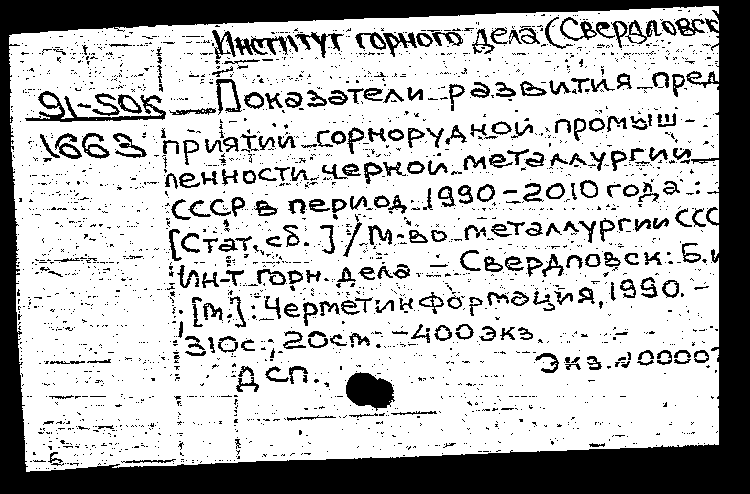 Институт горного дела (Свердловск
Показатели развития пред
91-50к
1663
приятий горнорудной промыш-
ленности черной металлургии
СССР в период 1990-2010 года :
[Стат. сб. ] / М-во металлургии ССС
Ин-т горн. дела - Свердловск: Б.и
; [М.]: Черметинформация, 1990. -
310с.; 20см. - 400 экз.
Экз. №00007
ДСП.
Б